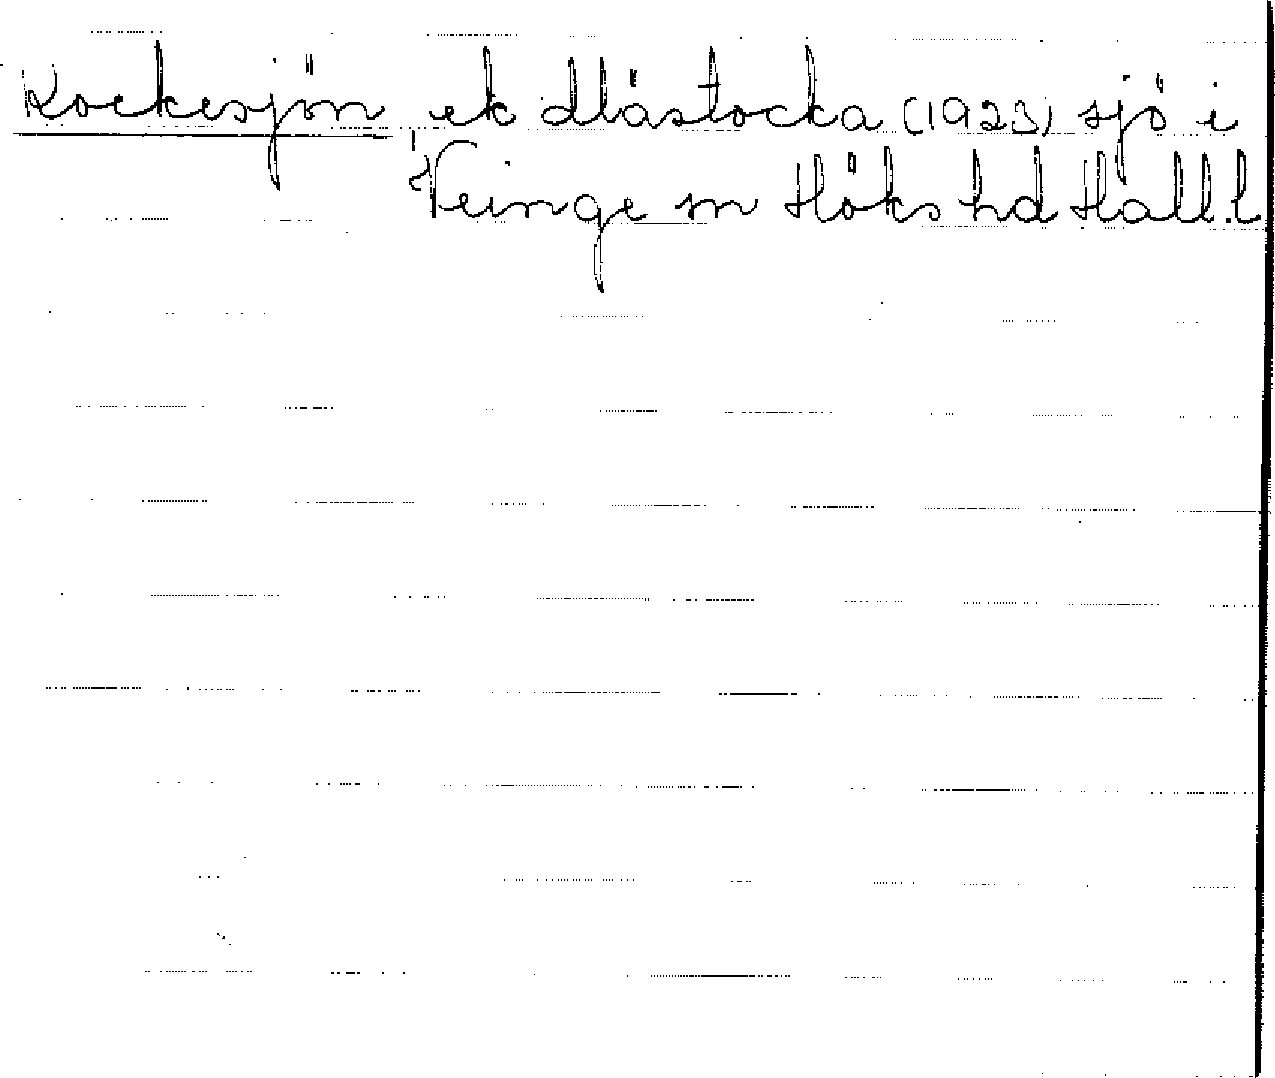 Kockesjön, ek Mästocka (1923) sjö i
Veinge sn Höks hd Hall.l